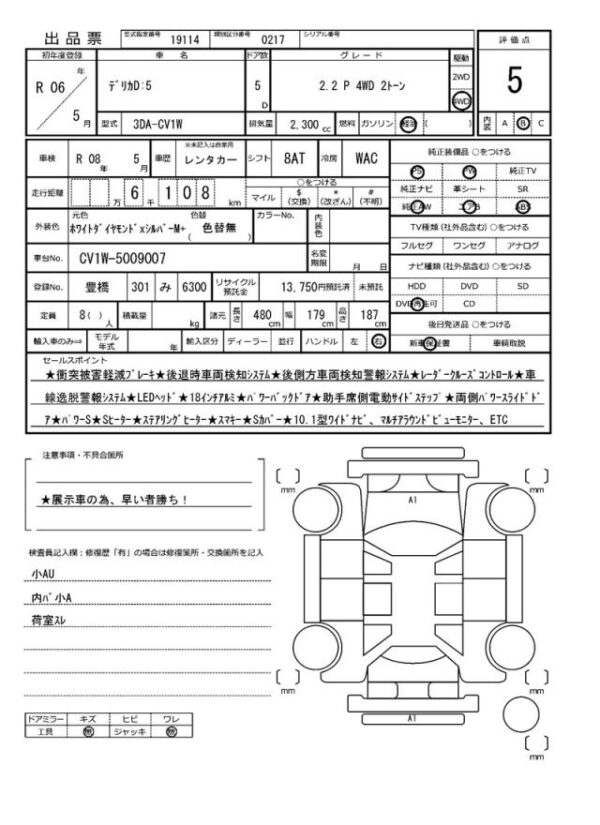 出品票 型式指定番号 19114 類別区分番号 0217 シリアル番号
評価点
5
初年度登録 車名 ドア数 グレード 駆動
R 06 年 5 月
デリカD:5
5 D
2.2 P 4WD 2トーン
2WD
4WD
型式 3DA-CV1W 排気量 2,300 cc 燃料 ガソリン 軽油 ( )
内装 A B C
車検 R 08 年 5 月 車歴 ※未記入は自家用 レンタカー シフト 8AT 冷房 WAC
純正装備品 ○をつける
PS PW 純正TV
純正ナビ 革シート SR
純正AW エアB ABS
走行距離 万 6 千 108 km
○をつける
マイル $(交換) *(改ざん) #(不明)
外装色 元色 ホワイトダイヤモンド×シルバーM+ 色替 ( 色替無 ) カラーNo. 内装色
TV種類 (社外品含む) ○をつける
フルセグ ワンセグ アナログ
車台No. CV1W-5009007 名変期限 月 日
ナビ種類 (社外品含む) ○をつける
HDD DVD SD
DVD再生可 CD
登録No. 豊橋 301 み 6300 リサイクル預託金 13,750円預託済 未預託
定員 8( )人 積載量 kg 諸元 長さ 480 cm 幅 179 cm 高さ 187 cm
後日発送品 ○をつける
新車保証書 車輌取説
輸入車のみ⇒ モデル年式 年 輸入区分 ディーラー 並行 ハンドル 左 右
セールスポイント
★衝突被害軽減ブレーキ★後退時車両検知システム★後側方車両検知警報システム★レーダークルーズコントロール★車
線逸脱警報システム★LEDヘッド★18インチアルミ★パワーバックドア★助手席側電動サイドステップ★両側パワースライドド
ア★パワーS★Sヒーター★ステアリングヒーター★スマキー★Sカバー★10.1型ワイドナビ、マルチアラウンドビューモニター、ETC
注意事項・不具合箇所
★展示車の為、早い者勝ち!
検査員記入欄:修復歴「有」の場合は修復箇所・交換箇所を記入
小AU
内バ小A
荷室スレ
ドアミラー キズ ヒビ ワレ
工具 無 ジャッキ 無
mm
mm
A1
mm
mm
A1
mm